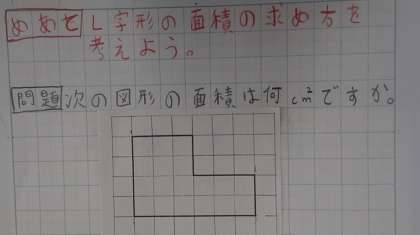 めあて L字形の面積の求め方を
考えよう。
問題 次の図形の面積は何cm²ですか。